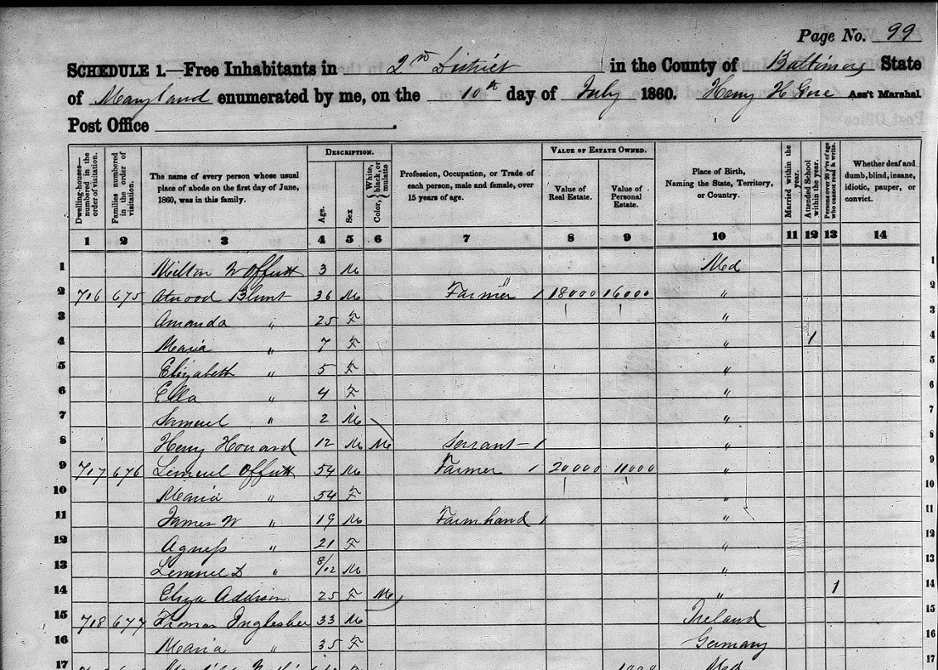 Page No. 99
SCHEDULE 1.—Free Inhabitants in 2nd District in the County of Baltimore State
of Maryland enumerated by me, on the 10th day of July 1860. Henry H Gore Ass't Marshal.
Post Office
Dwelling-houses—numbered in the order of visitation. Families numbered in the order of visitation. The name of every person whose usual place of abode on the first day of June, 1860, was in this family. DESCRIPTION. Age. Sex Color, White, black, or mulatto Profession, Occupation, or Trade of each person, male and female, over 15 years of age. VALUE OF ESTATE OWNED. Value of Real Estate. Value of Personal Estate. Place of Birth, Naming the State, Territory, or Country. Married within the year. Attended School within the year. Persons over 20 y'rs of age who cannot read & write. Whether deaf and dumb, blind, insane, idiotic, pauper, or convict.
1 2 3 4 5 6 7 8 9 10 11 12 13 14
1 Milton W Offutt 3 M Md 1
2 706 675 Atwood Blunt 36 M Farmer " 1 18000 16000 " 2
3 Amanda " 25 F " 3
4 Maria " 7 F " 1 4
5 Elizabeth " 5 F " 5
6 Ella " 4 F " 6
7 Samuel " 2 M " 7
8 Henry Howard 12 M M Servant 1 " 8
9 707 676 Lemuel Offutt 54 M Farmer 1 20000 11000 " 9
10 Maria " 54 F " 10
11 James W " 19 M Farmhand 1 " 11
12 Agness " 21 F " 12
13 Lemuel D " 8/12 M " 13
14 Eliza Addison 25 F M " 1 14
15 708 677 Thomas 33 M Ireland 15
16 Maria " 35 F Germany 16
17 Md 17